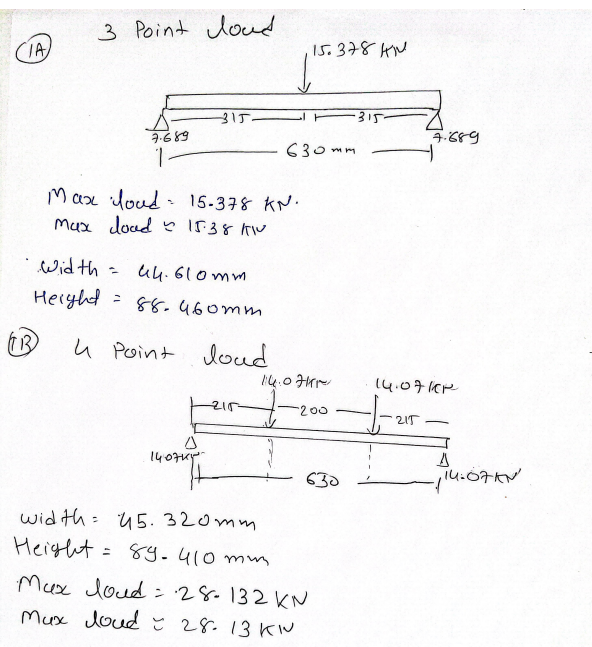 1A
3 Point load
15.378 KN
315
315
7.689
7.689
630 mm
Max load = 15.378 KN.
Max load ≈ 15.38 KN
Width = 44.610mm
Height = 88.460mm
1B
4 Point load
14.07KN
14.07 KN
215
200
215
14.07KN
14.07KN
630
width = 45.320mm
Height = 89.410 mm
Max load = 28.132 KN
Max load ≈ 28.13 KN